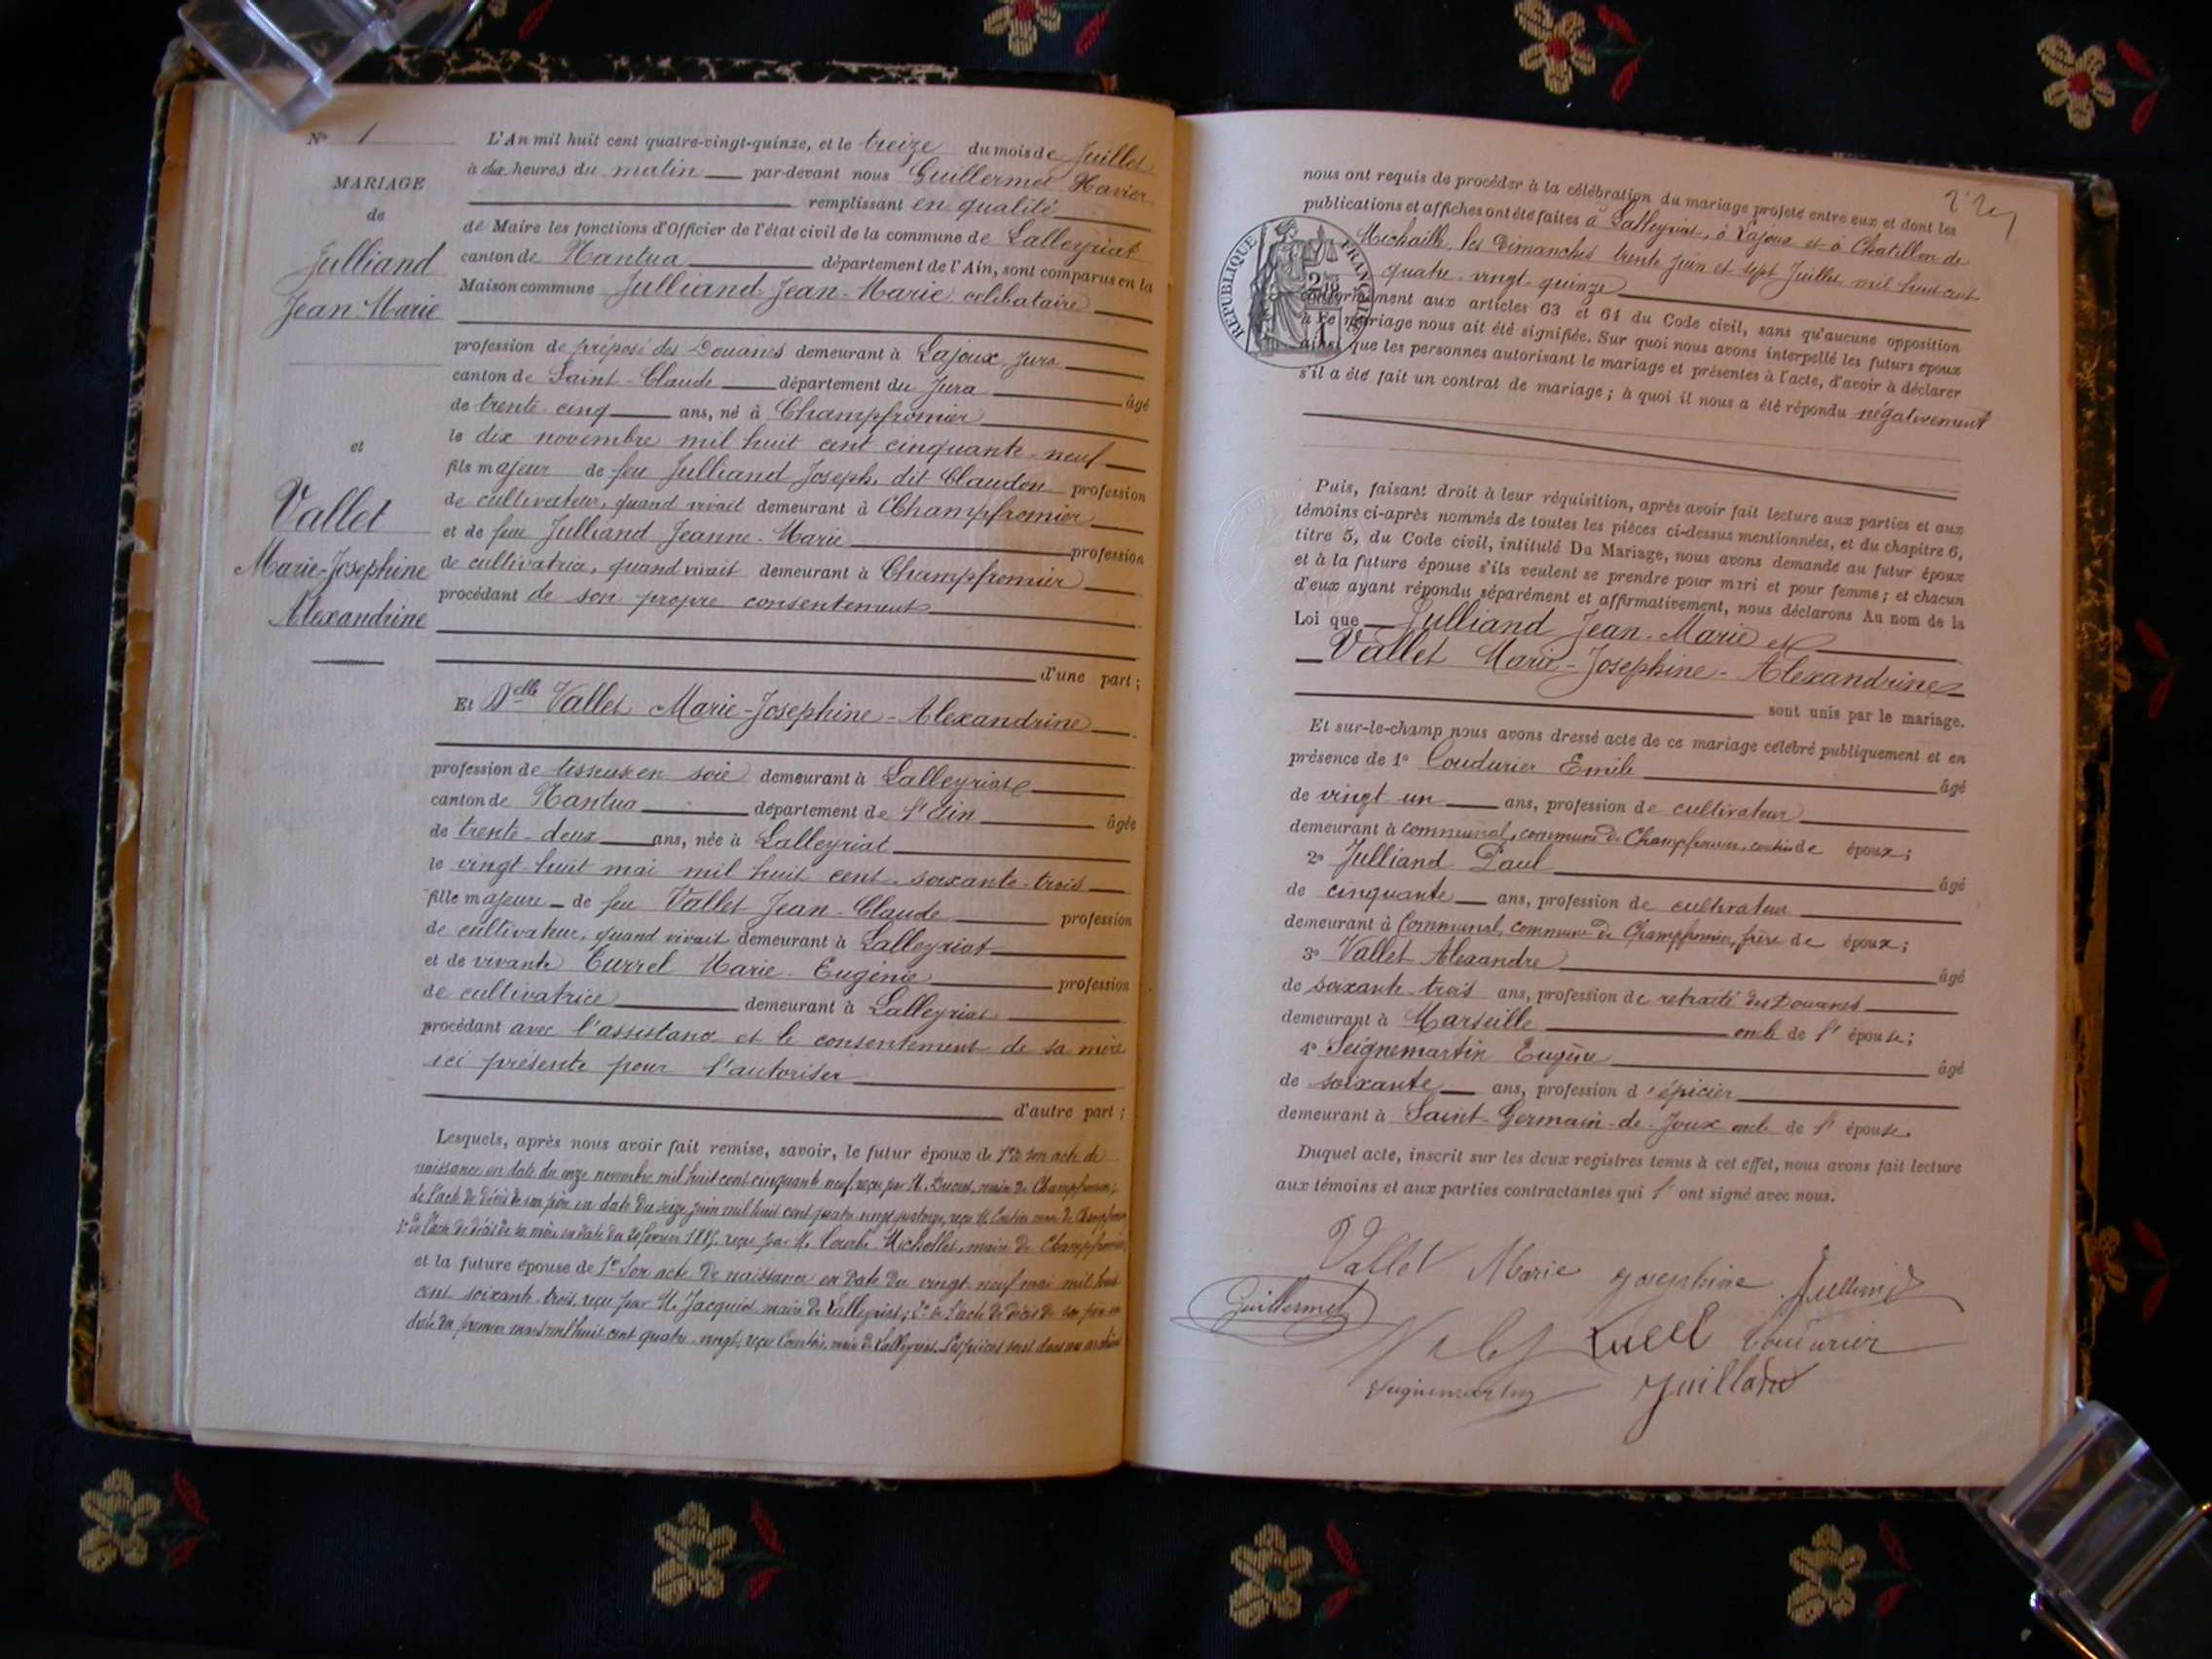 N° 1
MARIAGE
de
Julliand
Jean Marie
et
Vallet
Marie-Josephine
Alexandrine
L'An mil huit cent quatre-vingt-quinze, et le treize du mois de Juillet
à dix heures du matin par-devant nous Guillermet Xavier
remplissant en qualité
de Maire les fonctions d'Officier de l'état civil de la commune de Lalleyriat
canton de Nantua département de l'Ain, sont comparus en la
Maison commune Julliand Jean-Marie celibataire
profession de préposé des Douanes demeurant à Lajoux Jura
canton de Saint-Claude département du Jura âgé
de trente cinq ans, né à Champfromier
le dix novembre mil huit cent cinquante-neuf
fils majeur de feu Julliand Joseph, dit Claudon profession
de cultivateur, quand vivait demeurant à Champfromier
et de feue Julliand Jeanne-Marie profession
de cultivatrice, quand vivait demeurant à Champfromier
procédant de son propre consentement
d'une part ;
Et Delle Vallet Marie-Josephine-Alexandrine
profession de tisseuse en soie demeurant à Lalleyriat
canton de Nantua département de l'Ain âgée
de trente-deux ans, née à Lalleyriat
le vingt huit mai mil huit cent soixante-trois
fille majeure de feu Vallet Jean-Claude profession
de cultivateur, quand vivait demeurant à Lalleyriat
et de vivante Turrel Marie-Eugénie profession
de cultivatrice demeurant à Lalleyriat
procédant avec l'assistance et le consentement de sa mère
ici présente pour l'autoriser
d'autre part ;
Lesquels, après nous avoir fait remise, savoir, le futur époux de son acte de
naissance en date du onze novembre mil huit cent cinquante neuf, reçu par M. Ducret, maire de Champfromier ;
de l'acte de décès de son père en date du seize juin mil huit cent quatre vingt
de l'acte de décès de sa mère en date du février reçu par M. maire de Champfromier,
et la future épouse de 1° Son acte de naissance en date du vingt neuf mai mil huit
cent soixante trois, reçu par M. Jacquiot maire de Lalleyriat ; 2° de l'acte de décès de son père en
date du premier mars mil huit cent quatre-vingt, reçu maire de Lalleyriat. Les pièces sont dans nos archives
nous ont requis de procéder à la célébration du mariage projeté entre eux et dont les
publications et affiches ont été faites à Lalleyriat, à Lajoux et à Chatillon de
Michaille les Dimanches trente Juin et sept Juillet mil huit cent
quatre-vingt-quinze
RÉPUBLIQUE FRANÇAISE
conformément aux articles 63 et 64 du Code civil, sans qu'aucune opposition
à ce mariage nous ait été signifiée. Sur quoi nous avons interpellé les futurs époux
ainsi que les personnes autorisant le mariage et présentes à l'acte, d'avoir à déclarer
s'il a été fait un contrat de mariage ; à quoi il nous a été répondu négativement
Puis, faisant droit à leur réquisition, après avoir fait lecture aux parties et aux
témoins ci-après nommés de toutes les pièces ci-dessus mentionnées, et du chapitre 6,
titre 5, du Code civil, intitulé Du Mariage, nous avons demandé au futur époux
et à la future épouse s'ils veulent se prendre pour mari et pour femme ; et chacun
d'eux ayant répondu séparément et affirmativement, nous déclarons Au nom de la
Loi que Julliand Jean-Marie et
Vallet Marie-Josephine-Alexandrine
sont unis par le mariage.
Et sur-le-champ nous avons dressé acte de ce mariage célébré publiquement et en
présence de 1° Coudurier Emile âgé
de vingt un ans, profession de cultivateur
demeurant à communal, commune de Champfromier, cousin de époux ;
2° Julliand Paul âgé
de cinquante ans, profession de cultivateur
demeurant à Communal, commune de Champfromier, frère de époux ;
3° Vallet Alexandre âgé
de soixante-trois ans, profession de retraité des Douanes
demeurant à Marseille oncle de l'épouse ;
4° Seignemartin Eugène âgé
de soixante ans, profession d'épicier
demeurant à Saint-Germain-de-Joux oncle de l'épouse.
Duquel acte, inscrit sur les deux registres tenus à cet effet, nous avons fait lecture
aux témoins et aux parties contractantes qui l'ont signé avec nous.
Vallet Marie Josephine Julliand
Guillermet
Coudurier
Seignemartin